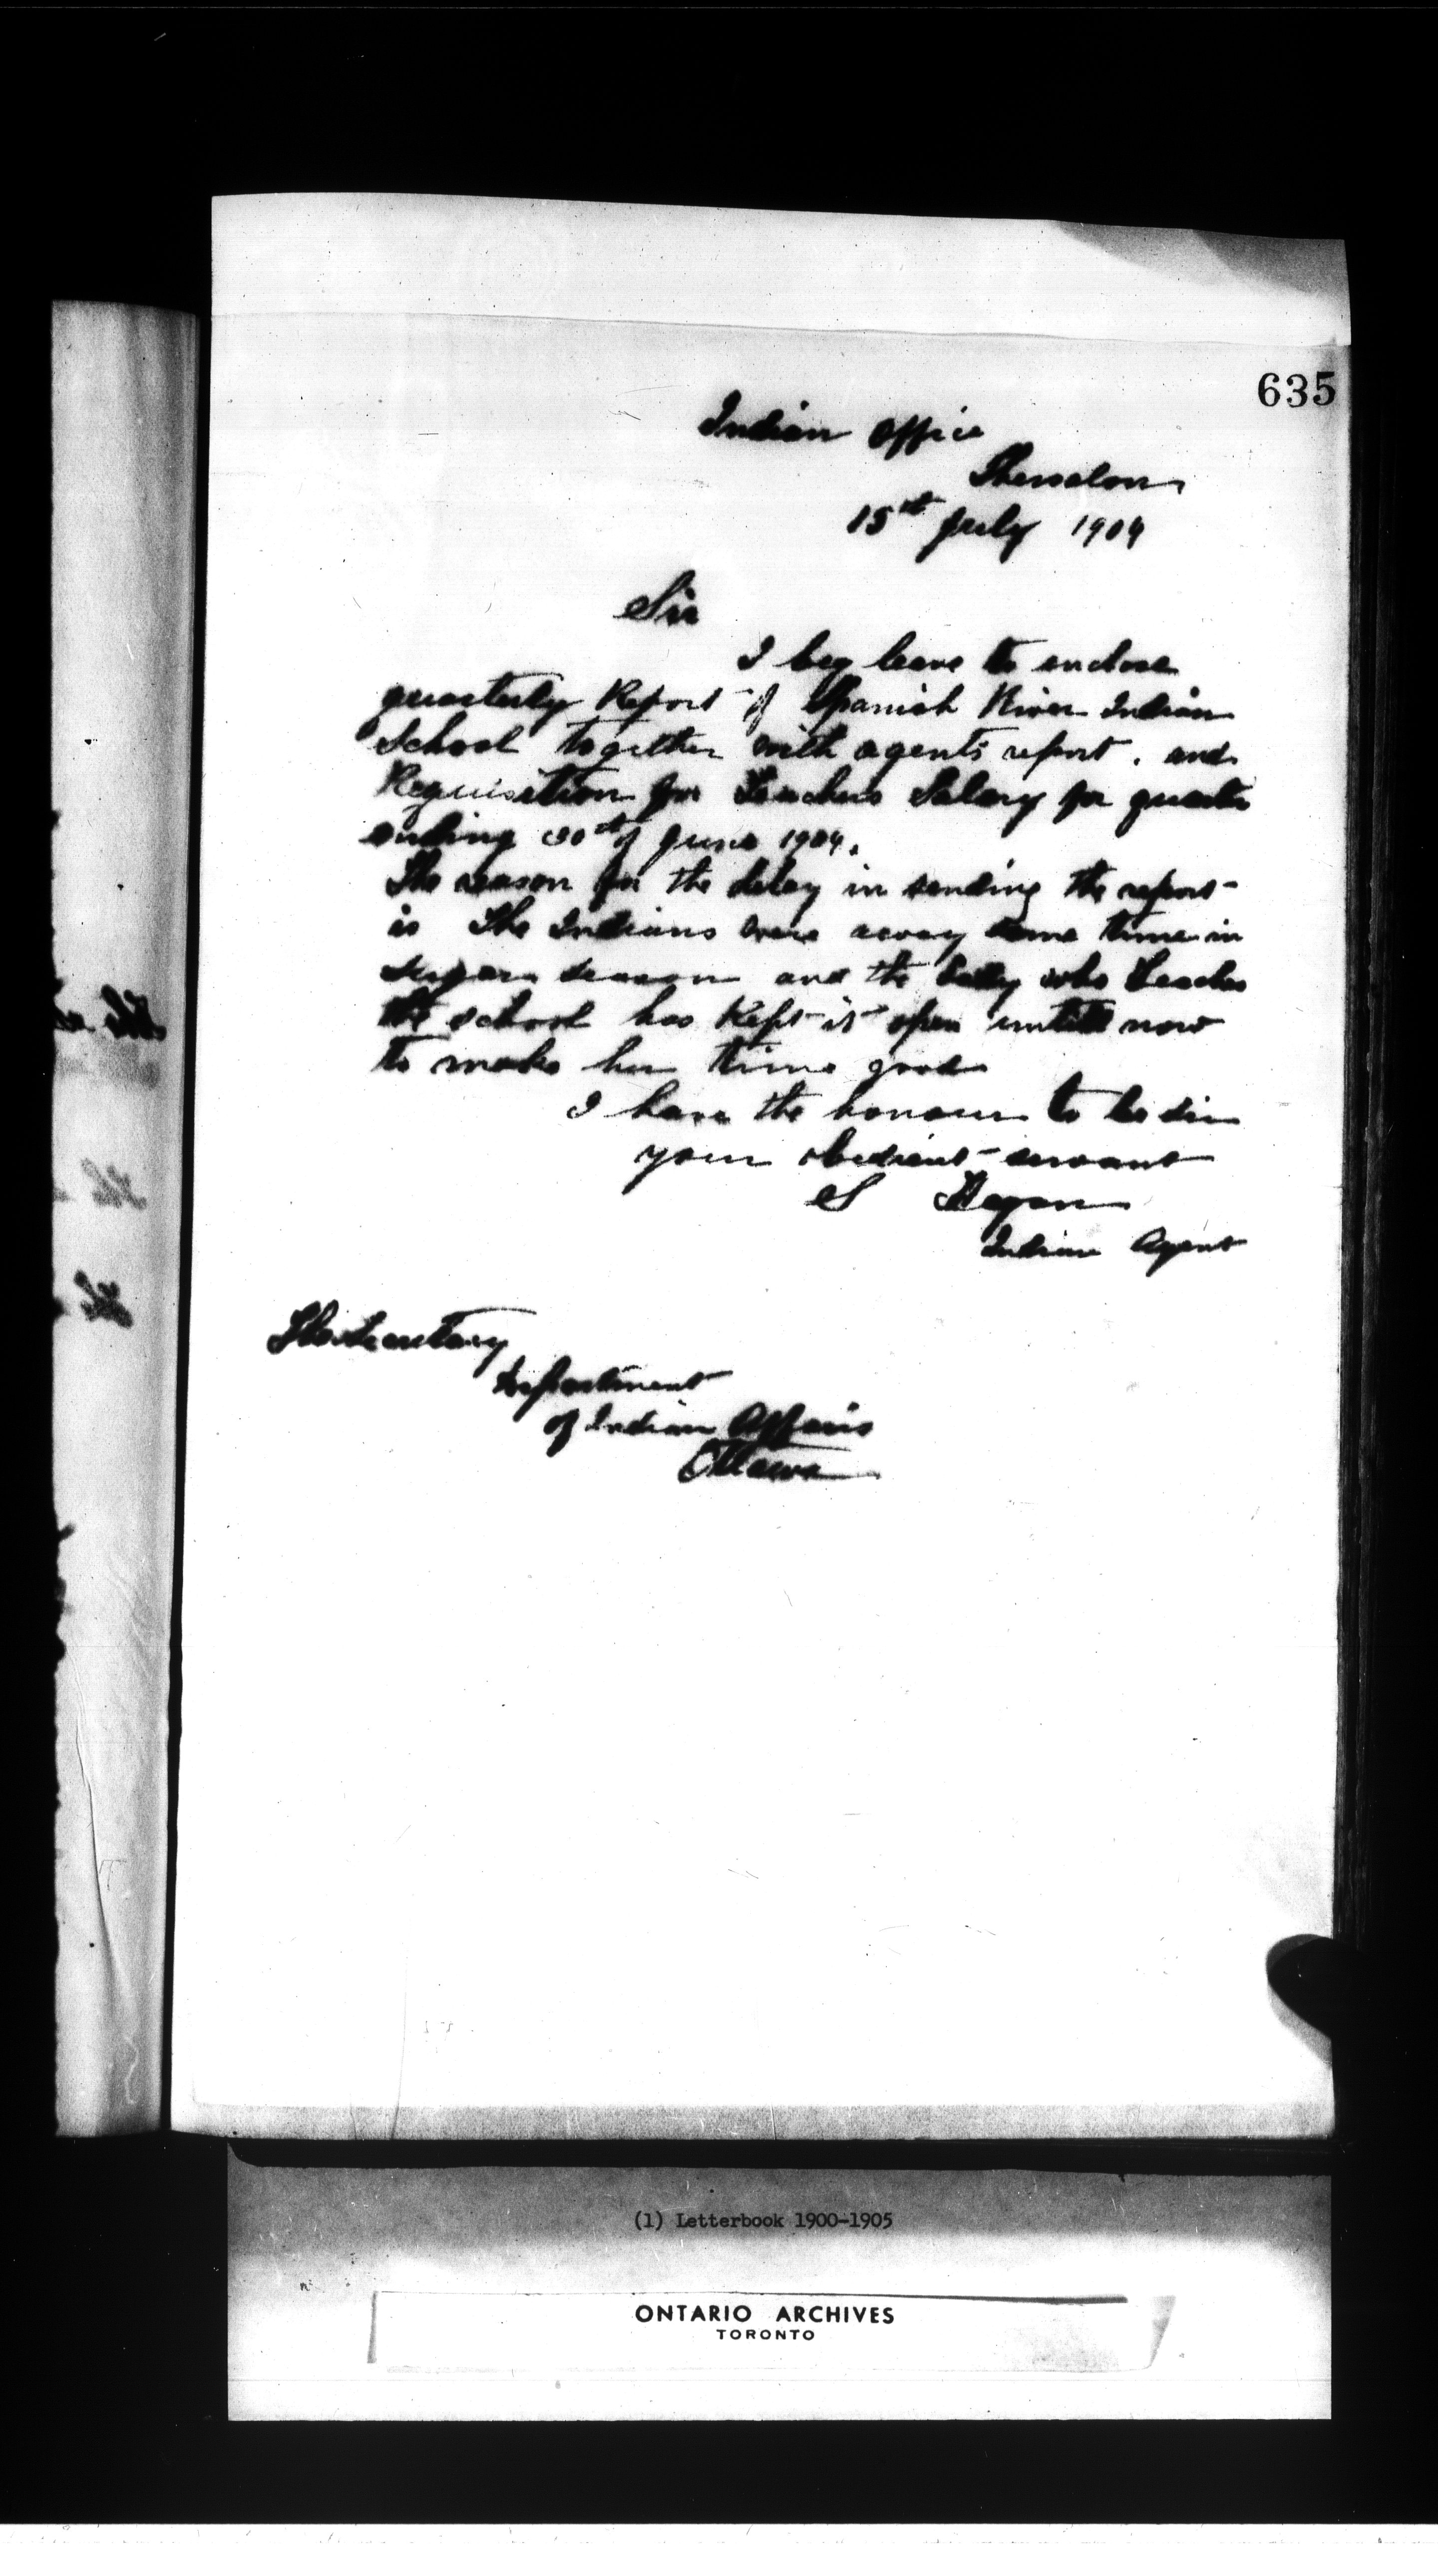 635
Indian Office
Thessalon
15th July 1904
Sir
I beg leave to enclose
quarterly Report of Spanish River Indian
School together with agents report. and
Requisition for Teachers Salary for quarter
ending 30th of June 1904.
The reason for the delay in sending the report
is The Indians were away some time in
sugar season and the Lady who teaches
the school has Kept it open untill now
to make her time good
I have the honour to be Sir
your obedient servant
S Hagan
Indian Agent
The Secretary
Department
of Indian Affairs
Ottawa
(1) Letterbook 1900-1905
ONTARIO ARCHIVES
TORONTO